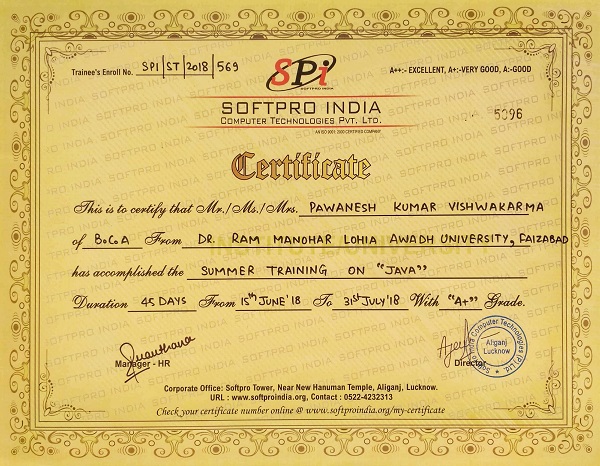 Trainee's Enroll No. SPI/ST/2018/569
SPi
SOFTPRO INDIA
A++:- EXCELLENT, A+:-VERY GOOD, A:-GOOD
SOFTPRO INDIA
COMPUTER TECHNOLOGIES PVT. LTD.
AN ISO 9001: 2000 CERTIFIED COMPANY
5096
Certificate
This is to certify that Mr./Ms./Mrs. PAWANESH KUMAR VISHWAKARMA
of B.C.A From DR. RAM MANOHAR LOHIA AWADH UNIVERSITY, FAIZABAD
has accomplished the SUMMER TRAINING ON "JAVA"
Duration 45 DAYS From 15th JUNE'18 To 31st JULY'18 With "A+" Grade.
Manager - HR
Director
Softpro India Computer Technologies (P) Ltd.
Aliganj
Lucknow
Corporate Office: Softpro Tower, Near New Hanuman Temple, Aliganj, Lucknow.
URL : www.softproindia.org, Contact : 0522-4232313
Check your certificate number online @ www.softproindia.org/my-certificate